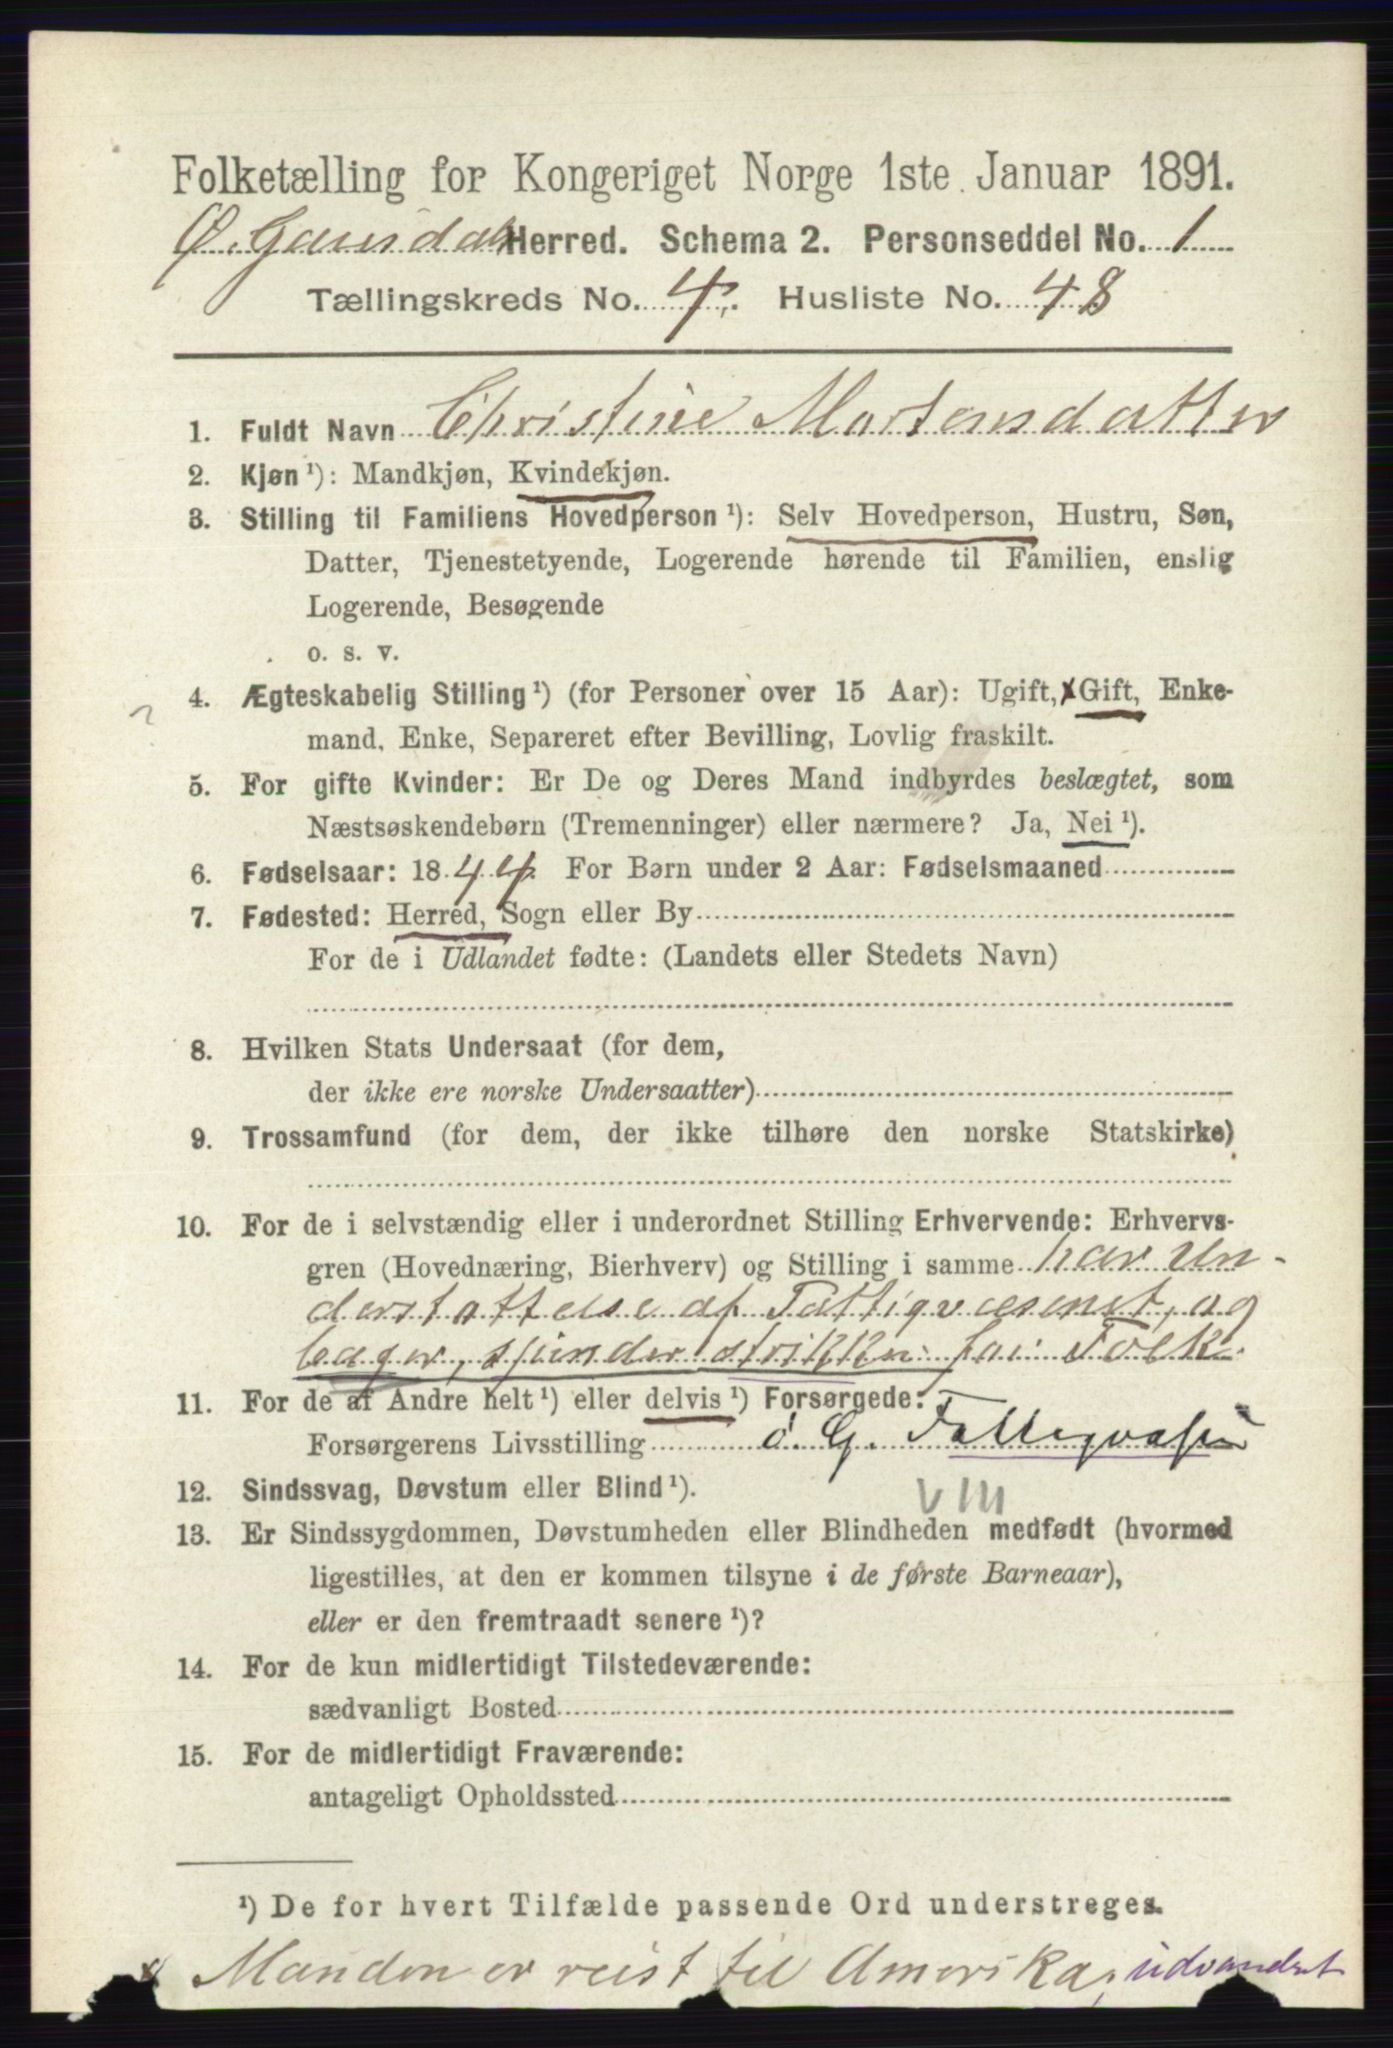 Folketælling for Kongeriget Norge 1ste Januar 1891.
Ø. Gausdal Herred. Schema 2. Personseddel No. 1
Tællingskreds No. 4. Husliste No. 48
1. Fuldt Navn Christine Mortensdatter
2. Kjøn ¹): Mandkjøn, Kvindekjøn.
3. Stilling til Familiens Hovedperson ¹): Selv Hovedperson, Hustru, Søn,
Datter, Tjenestetyende, Logerende hørende til Familien, enslig
Logerende, Besøgende
o. s. v.
4. Ægteskabelig Stilling ¹) (for Personer over 15 Aar): Ugift, x Gift, Enke-
mand, Enke, Separeret efter Bevilling, Lovlig fraskilt.
5. For gifte Kvinder: Er De og Deres Mand indbyrdes beslægtet, som
Næstsøskendebørn (Tremenninger) eller nærmere? Ja, Nei ¹).
6. Fødselsaar: 1844. For Børn under 2 Aar: Fødselsmaaned
7. Fødested: Herred, Sogn eller By
For de i Udlandet fødte: (Landets eller Stedets Navn)
8. Hvilken Stats Undersaat (for dem,
der ikke ere norske Undersaatter)
9. Trossamfund (for dem, der ikke tilhøre den norske Statskirke)
10. For de i selvstændig eller i underordnet Stilling Erhvervende: Erhvervs-
gren (Hovednæring, Bierhverv) og Stilling i samme har Un-
derstøttelse af Fattigvæsenet, og
bager, spinder strikker for Folk.
11. For de af Andre helt ¹) eller delvis ¹) Forsørgede:
Forsørgerens Livsstilling ø. G. Fattigvæsen
12. Sindssvag, Døvstum eller Blind ¹).
VIII
13. Er Sindssygdommen, Døvstumheden eller Blindheden medfødt (hvormed
ligestilles, at den er kommen tilsyne i de første Barneaar),
eller er den fremtraadt senere ¹)?
14. For de kun midlertidigt Tilstedeværende:
sædvanligt Bosted
15. For de midlertidigt Fraværende:
antageligt Opholdssted
¹) De for hvert Tilfælde passende Ord understreges.
x Manden er reist til Amerika, udvandret